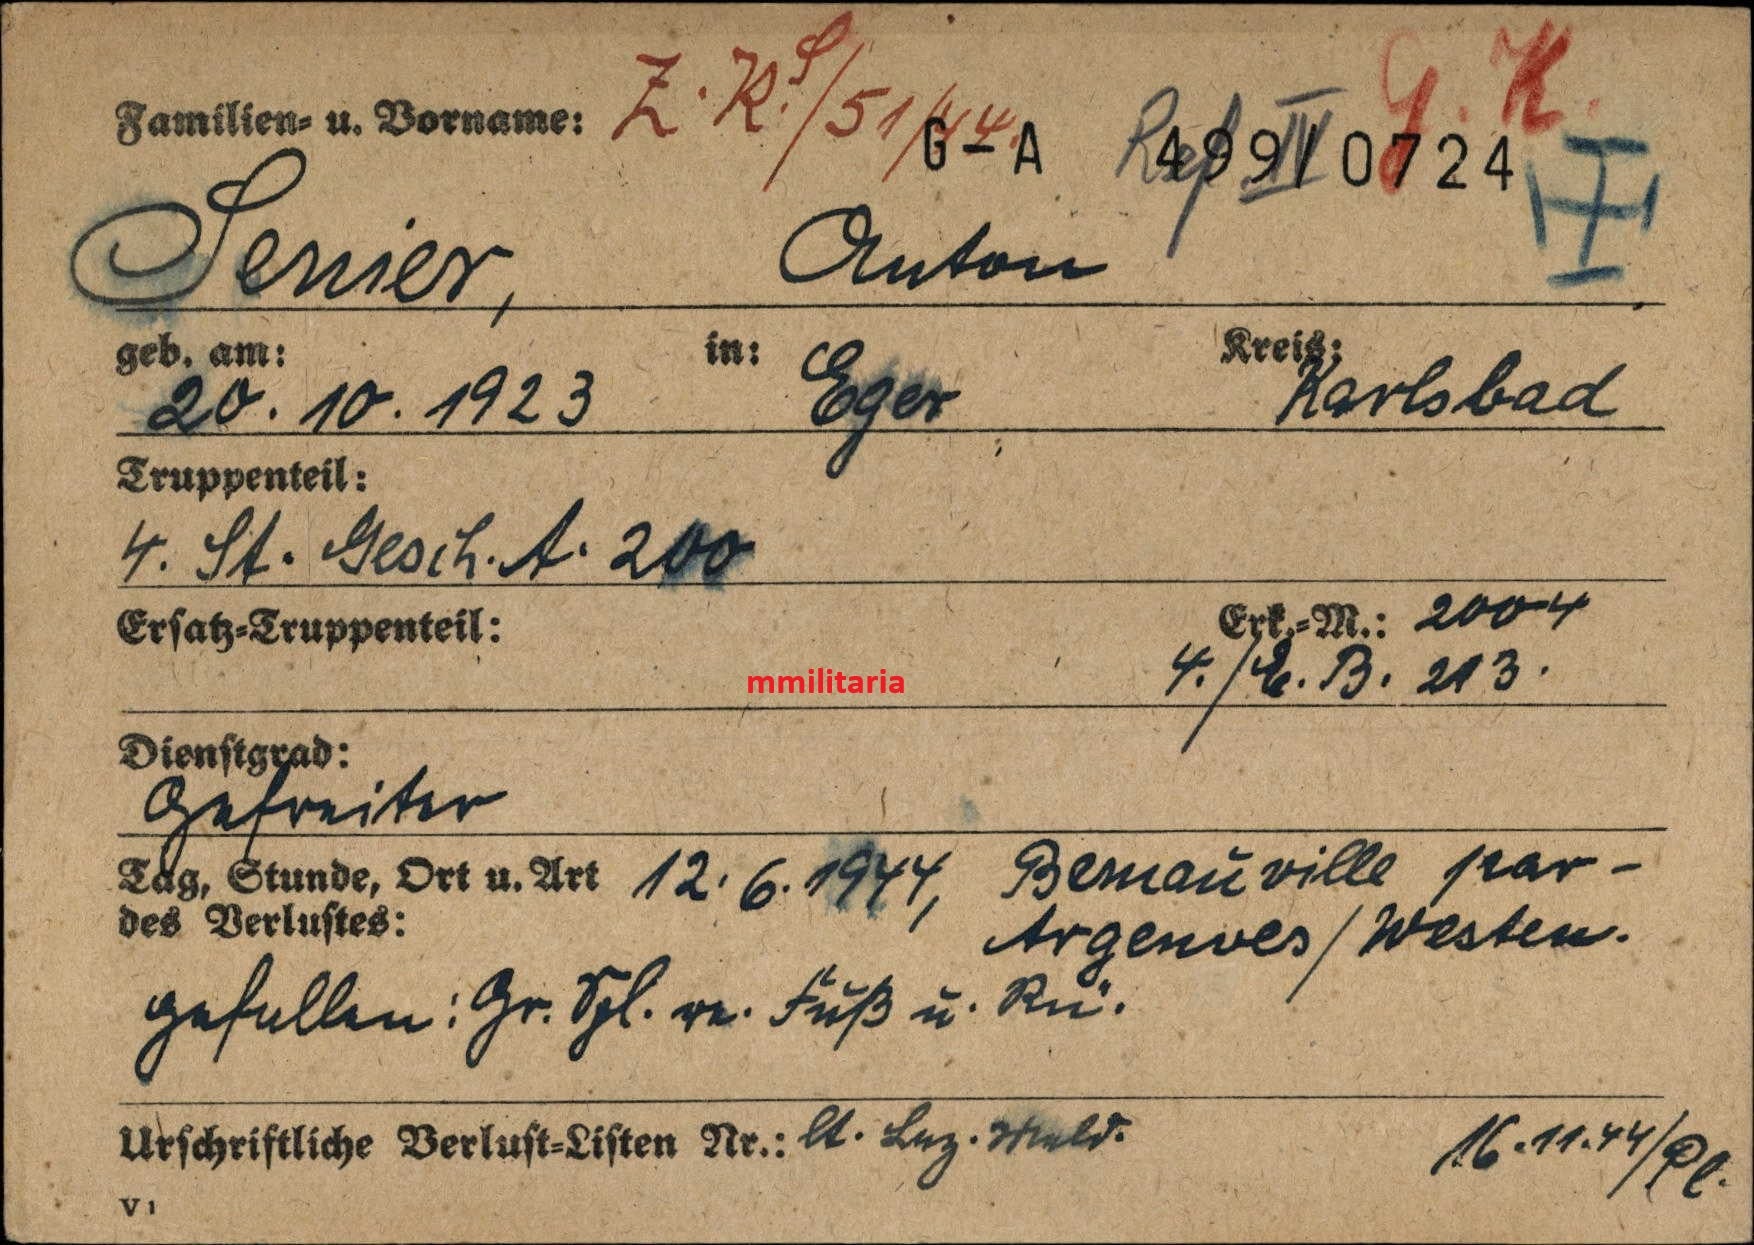 Z. K. S/51/44.
Rep. IV
G. K.
Familien- u. Vorname:
G-A 499/0724
Senier, Anton
geb. am: in: Kreis:
20. 10. 1923 Eger Karlsbad
Truppenteil:
4. St. Gesch. A. 200
Ersatz-Truppenteil: Erk.-M.: 2004
4./E. B. 213.
mmilitaria
Dienstgrad:
Gefreiter
Tag, Stunde, Ort u. Art 12. 6. 1944, Bernauville par-
des Verlustes: Argenves/Westen.
gefallen: Gr. Spl. re. Fuß u. Rü.
Urschriftliche Verlust-Listen Nr.: lt. Laz. Meld. 16.11.44/Pl.
V 1